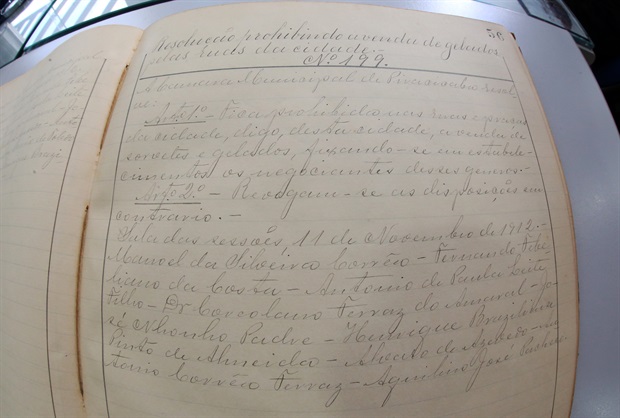 50
Resolução prohibindo a venda de gelados
pelas ruas da cidade.-
Nº 199.
A Camara Municipal de Piracicaba resol-
ve:
Artº 1º - Fica prohibida nas ruas e praças
da cidade, digo, desta cidade, a venda de
sorvetes e gelados, fixando-se em estabele-
cimentos os negociantes desses generos.-
Artº 2º - Revogam-se as disposições em
contrario.-
Sala das sessões, 11 de Novembro de 1912.-
Manoel da Silveira Corrêa - Fernando Febe-
liano da Costa - Antonio de Padua Leite
Filho - Dr Coriolano Ferraz do Amaral - Jo-
sé Nhonho Padre - Henrique Brazilense
Pinto de Almeida - de Azevedo - An-
tonio Corrêa Ferraz - Aquilino José Pacheco